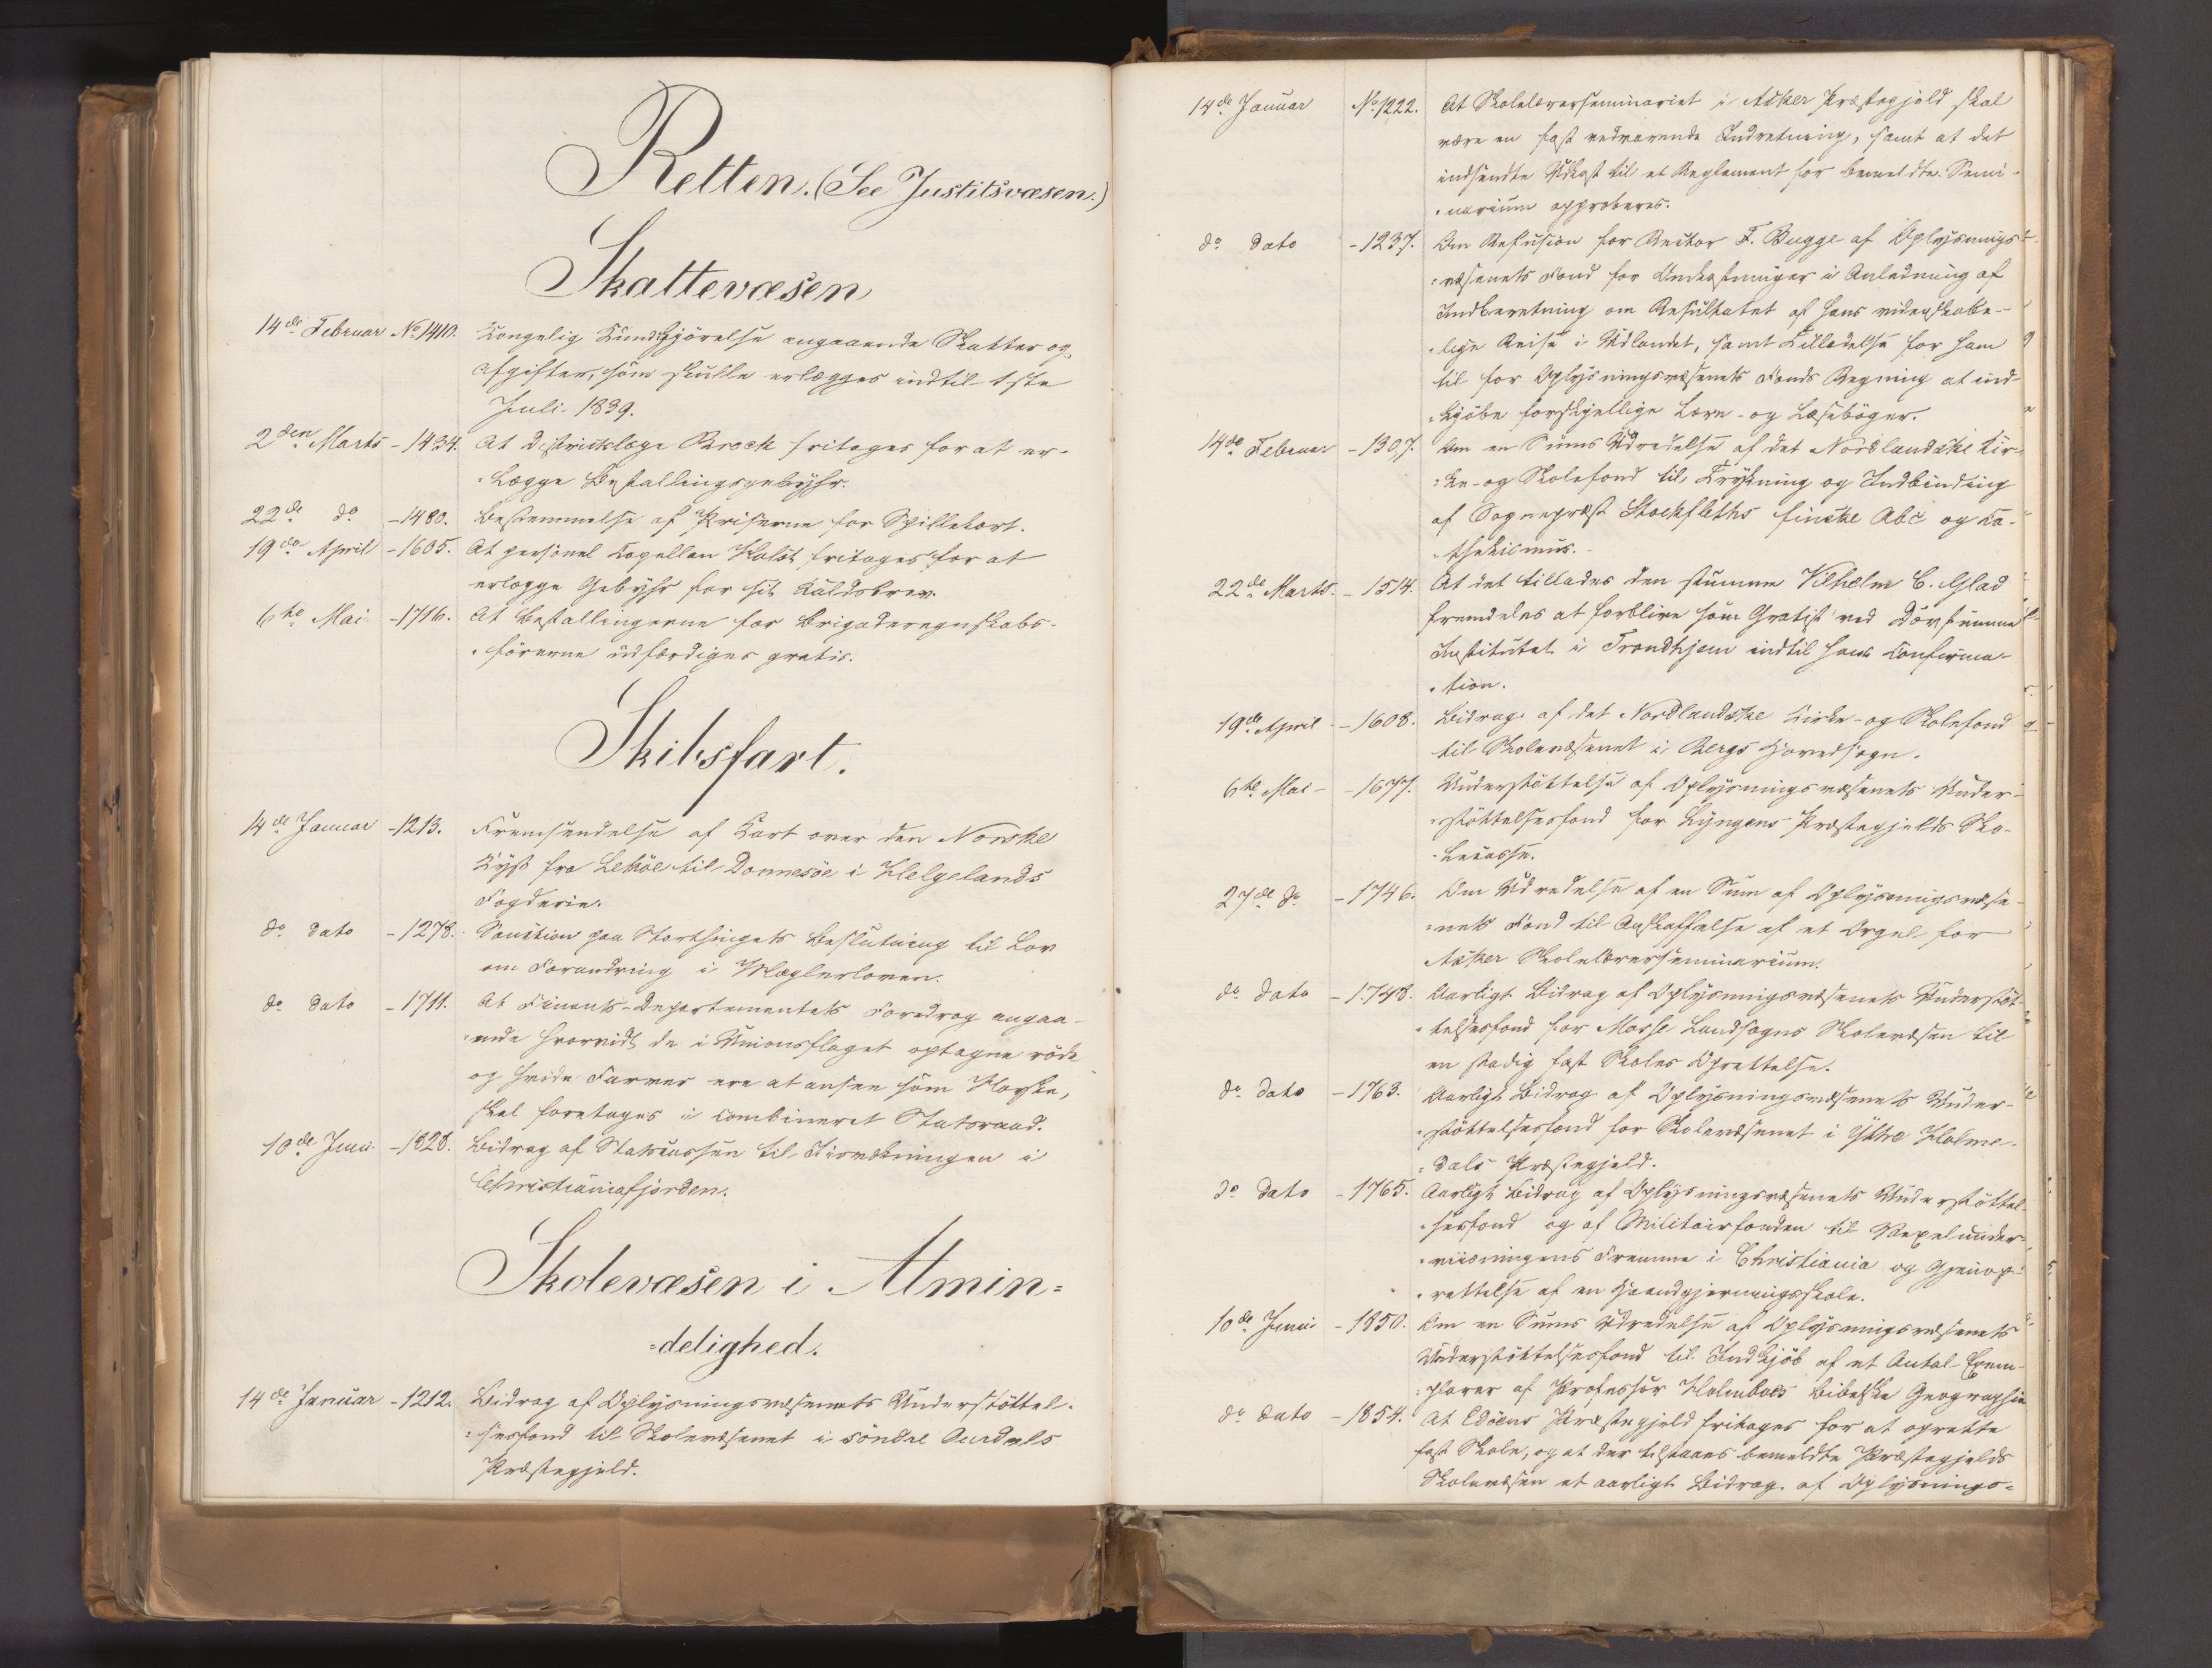 Retten. (See Justitsvæsen.)
Skattevæsen
14de Februar No 1410. Kongelig Kundgjörelse angaaende Skatter og
Afgifter, som skulle erlægges indtil 1ste
Juli 1839.
2den Marts - 1434. At Districtslæge Brock fritages for at er-
-lægge Bestallingsgebyhr.
22de do - 1480. Bestemmelse af Priserne for Spillekort.
19de April - 1605. At personel Capellan Holst fritages for at
erlægge Gebyhr for sit Kaldsbrev.
6te Mai - 1716. At Bestallingerne for Brigaderegnskabs-
-förerne udfærdiges gratis.
Skibsfart.
14de Januar - 1213. Fremsendelse af Kart over den Norske
Kyst fra Leköe til Donnesöe i Helgelands
Fogderie.
do dato - 1278. Sanction paa Storthingets Beslutning til Lov
om Forandring i Mæglerloven.
do dato - 1711. At Finants-Departementets Foredrag angaa-
-ende hvorvidt de i Unionsflaget optagne röde
og hvide Farver ere at ansee som Norske,
skal foretages i combineret Statsraad.
10de Juni - 1828. Bidrag af Statscassen til Fisvækningen i
Christianiafjorden.
Skolevæsen i Almin=
=delighed.
14de Januar - 1212. Bidrag af Oplysningsvæsenets Understöttel-
-sesfond til Skolevæsenet i söndre Aurdals
Præstegjeld.
14de Januar No 1222. At Skolelærerseminariet i Asker Præstegjeld skal
være en fast vedvarende Indretning, samt at det
indsendte Udkast til et Reglement for bemeldte Semi-
-narium approberes.
do dato - 1237. Om Refusion for Rector F. Bugge af Oplysnings-
-væsenets Fond for Omkostninger i Anledning af
Indberetning om Resultatet af hans videnskabe-
-lige Reise i Udlandet, samt Tilladelse for ham
til for Oplysningsvæsenets Fonds Regning at ind-
-kjöbe forskjellige Lære- og Læseböger.
14de Februar - 1307. Om en Sums Udredelse af det Nordlandske Kir-
-ke- og Skolefond til Trykning og Indbinding
af Sognepræst Stockfleths finske Abc og Ca-
-thekismus.
22de Marts - 1514. At det tillades den stumme Vilhelm C. Glad
fremdeles at forblive som Gratist ved Dövstumme
Institutet i Trondhjem indtil hans Confirma-
-tion.
19de April - 1608. Bidrag af det Nordlandske Kirke- og Skolefond
til Skolevæsenet i Bergs Hovedsogn.
6te Mai - 1677. Understöttelse af Oplysningsvæsenets Under-
-stöttelsesfond for Lyngens Præstegjelds Sko-
-lecasse.
27de do - 1746. Om Udredelse af en Sum af Oplysningsvæse-
-nets Fond til Anskaffelse af et Orgel for
Asker Skolelærerseminarium.
do dato - 1748. Aarligt Bidrag af Oplysningsvæsenets Understöt-
-telsesfond for Mosse Landsogns Skolevæsen til
en stadig fast Skoles Oprettelse.
do dato - 1763. Aarligt Bidrag af Oplysningsvæsenets Under-
-stöttelsesfond for Skolevæsenet i Yttre Holme-
-dals Præstegjeld.
do dato - 1765. Aarligt Bidrag af Oplysningsvæsenets Understöttel-
-sesfond og af Militairfonden til Vexelunder-
-viisningens Fremme i Christiania og Gjenop-
-rettelse af en Haandgjerningsskole.
10de Juni - 1850. Om en Sums Udredelse af Oplysningsvæsenets
Understöttelsesfond til Indkjöb af et Antal Exem-
-plarer af Professor Holmboes bibelske Geographie
do dato - 1854. At Edöens Præstegjeld fritages for at oprette
fast Skole, og at der tilstaaes bemeldte Præstegjelds
Skolevæsen et aarligt Bidrag af Oplysnings=